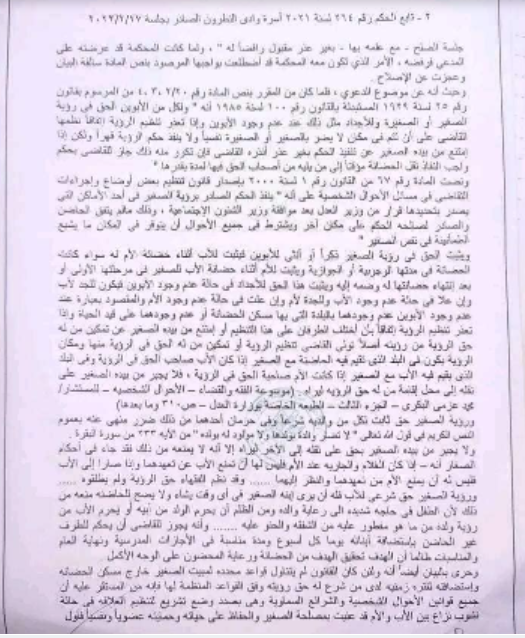 ٢ - تابع الحكم رقم ٢٦٤ لسنة ٢٠٢١ أسرة وادى النطرون الصادر بجلسة ٢٠٢٢/٢/٢٧
جلسة الصلح - مع علمه بها - بغير عذر مقبول رافضاً له " ، ولما كانت المحكمة قد عرضته على
المدعي فرفضه ، الأمر الذي تكون معه المحكمة قد اضطلعت بواجبها المرصود بنص المادة سالفة البيان
وعجزت عن الإصلاح .
وحيث أنه عن موضوع الدعوي ، فلما كان من المقرر بنص المادة ٢٠/ ٢، ٣، ٤ من المرسوم بقانون
رقم ٢٥ لسنة ١٩٢٩ المستبدلة بالقانون رقم ١٠٠ لسنة ١٩٨٥ أنه " ولكل من الأبوين الحق في رؤية
الصغير أو الصغيرة وللأجداد مثل ذلك عند عدم وجود الأبوين وإذا تعذر تنظيم الرؤية إتفاقاً نظمها
القاضي على أن تتم في مكان لا يضر بالصغير أو الصغيرة نفسياً ولا ينفذ حكم الرؤية قهراً ولكن إذا
إمتنع من بيده الصغير عن تنفيذ الحكم بغير عذر أنذره القاضي فإن تكرر منه ذلك جاز للقاضي بحكم
واجب النفاذ نقل الحضانة مؤقتاً إلى من يليه من أصحاب الحق فيها لمدة يقدرها "
ونصت المادة رقم ٦٧ من القانون رقم ١ لسنة ٢٠٠٠ بإصدار قانون تنظيم بعض أوضاع وإجراءات
التقاضي في مسائل الأحوال الشخصية على أنه " ينفذ الحكم الصادر برؤية الصغير في أحد الأماكن التي
يصدر بتحديدها قرار من وزير العدل بعد موافقة وزير الشئون الإجتماعية ، وذلك مالم يتفق الحاضن
والصادر لصالحه الحكم على مكان آخر ويشترط في جميع الأحوال أن يتوفر في المكان ما يشيع
الطمأنينة في نفس الصغير "
ويثبت الحق في رؤية الصغير ذكراً أو أنثى للأبوين فيثبت للأب أثناء حضانة الأم له سواء كانت
الحضانة في مدتها الوجوبية أو الجوازية ويثبت للأم أثناء حضانة الأب للصغير في مرحلتها الأولى أو
بعد إنتهاء حضانتها له وضمه إليه ويثبت هذا الحق للأجداد في حالة عدم وجود الأبوين فيكون للجد لأب
وإن علا في حالة عدم وجود الأب وللجدة لأم وإن علت في حالة عدم وجود الأم والمقصود بعبارة عند
عدم وجود الأبوين عدم وجودهما بالبلدة التي بها مسكن الحضانة أو عدم وجودهما على قيد الحياة وإذا
تعذر تنظيم الرؤية إتفاقاً بأن أختلف الطرفان على هذا التنظيم أو إمتنع من بيده الصغير عن تمكين من له
حق الرؤية من رؤيته أصلاً تولي القاضي تنظيم الرؤية أو تمكين من له الحق في الرؤية منها ومكان
الرؤية يكون في البلد الذى تقيم فيه الحاضنة مع الصغير إذا كان الأب صاحب الحق في الرؤية وفي البلد
الذى يقيم فيه الأب مع الصغير إذا كانت الأم صاحبة الحق في الرؤية ، فلا يجبر من بيده الصغير على
نقله إلى محل إقامة من له حق الرؤيه ليراه . (موسوعة الفقه والقضاء - الأحوال الشخصيه - للمستشار/
محمد عزمى البكرى - الجزء الثالث - الطبعه الخاصة بوزارة العدل - ص ٣١٠ وما بعدها)
ورؤية الصغير حق ثابت لكل من والديه شرعاً وفى حرمان أحدهما من ذلك ضرر منهى عنه بعموم
النص الكريم في قول الله تعالى " لا تضار والدة بولدها ولا مولود له بولده" من الآيه ٢٣٣ من سورة البقرة .
ولا يجبر من بيده الصغير بحق على نقله إلى الأخر ليراه إلا أنه لا يمنعه من ذلك فقد جاء في أحكام
الصغار أنه - إذا كان الغلام والجاريه عند الأم فليس لها أن تمنع الأب عن تعهدهما وإذا صارا إلى الأب
فليس له أن يمنع الأم من تعهدهما والنظر إليهما ...... وقد نظم الفقهاء حق الرؤية ولم يطلقوه ......
ورؤية الصغير حق شرعي للأب فله أن يرى إبنه الصغير فى أى وقت يشاء ولا يصح للحاضنه منعه من
ذلك لأن الطفل في حاجه شديده الى رعاية والده ومن الظلم أن يحرم الولد من أبيه أو يحرم الأب من
رؤية ولده من ما هو مفطور عليه من الشفقه والحنو عليه ...... وأنه يجوز للقاضى أن يحكم للطرف
غير الحاضن بإستضافة أبنائه يوماً كل أسبوع ومدة مناسبة فى الأجازات المدرسية ونهاية العام
والمناسبات طالما أن الهدف تحقيق الهدف من الحضانة ورعاية المحضون على الوجه الأكمل
وحرى بالبيان أيضاً أنه ولئن كان القانون لم يتناول قواعد محدده لمبيت الصغير خارج مسكن الحضانه
وإستضافته لفتره زمنيه لدى من شرع له حق رؤيته وفق القواعد المنظمة لها فإنه من المستقر عليه أن
جميع قوانين الأحوال الشخصية والشرائع السماوية وهى بصدد وضع تشريع لتنظيم العلاقه فى حالة
نشوب نزاع بين الأب والأم قد عنيت بمصلحة الصغير والحفاظ على حياته وحمايته عضوياً ونفسياً